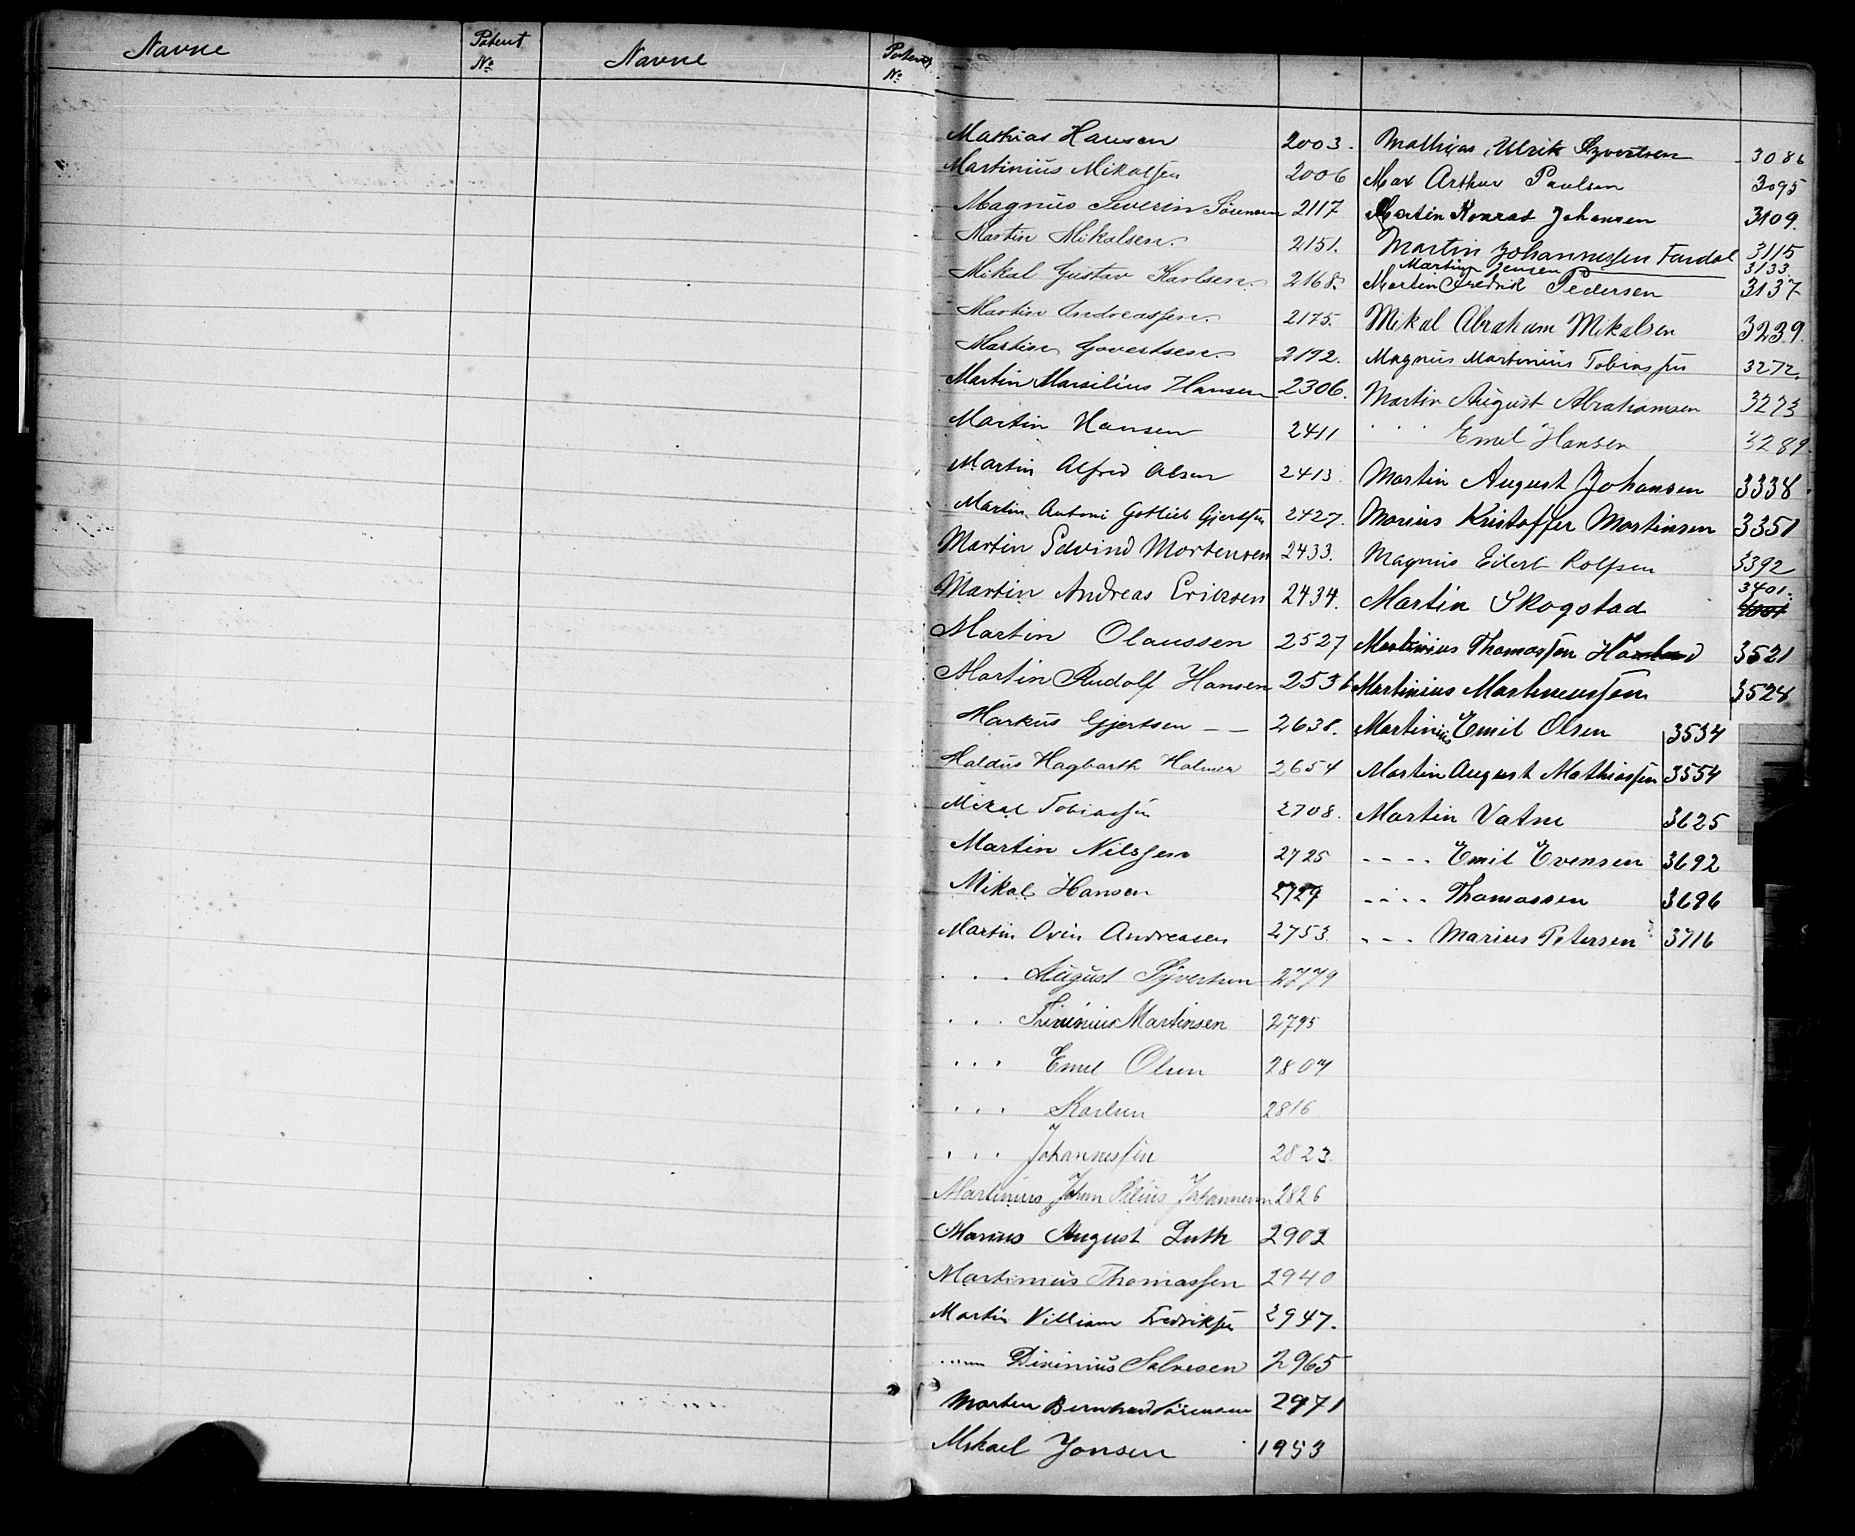 Navne Patent No Navne Patent No
Mathias Hansen 2003.
Martinius Mikalsen 2006
Magnus Severin Sörensen 2117
Martin Mikalsen. 2151.
Mikal Gustav Karlsen. 2168.
Martin Andreassen. 2175.
Martin Govertsen. 2192.
Martin Marsilius Hansen 2306.
Martin Hansen 2411
Martin Alfred Olsen 2413
Martin Antoni Gotlieb Gjertsen 2427.
Martin Edvind Mortensen 2433.
Martin Andreas Ericksen 2434.
Martin Olaussen 2527
Martin Rudolf Hansen 2536
Markus Gjertsen 2638.
Haldus Hagbarth Holmer 2654
Mikal Tobiassen 2708.
Martin Nilssen 2725
Mikal Hansen 2729
Martin Ovin Andreasen 2753
" " " August Syvertsen 2779
" " " Martinsen 2795
" " " Emil Olsen 2807
" " " Karlsen 2816
" " " Johannessen 2823.
Martinius Johan Petius Johannesen 2826
Marius August Luth 2902
Martinius Thomassen 2940
Martin Villiam Fredriksen 2947.
" " " Divinius Salvesen 2965
Morten Bernhard Sörensen 2971
Mikael Jonsen 1953
Mathias Ulrik Syvertsen 3086
Max Arthur Paulsen 3095
Martin Konrad Johansen 3109.
Martin Johannessen Fardal 3115
Martin Jensen 3133.
Martin Fredrik Pedersen 3137
Mikal Abraham Mikalsen 3239.
Magnus Martinius Tobiassen 3272.
Martin August Abrahamsen 3273
" " " Emil Hansen 3289.
Martin August Johansen 3338.
Marius Kristoffer Martinsen 3351
Magnus Eilert Rolfsen 3392
Martin Skogstad 3401.
Martinius Thomassen 3521
Martinius Martineussen 3524
Martinius Emil Olsen 3534
Martin August Mathiassen 3554
Martin Vatne 3625
" " " " Emil Evensen 3692
" " " " Thomassen 3696
" " " Marius Petersen 3716